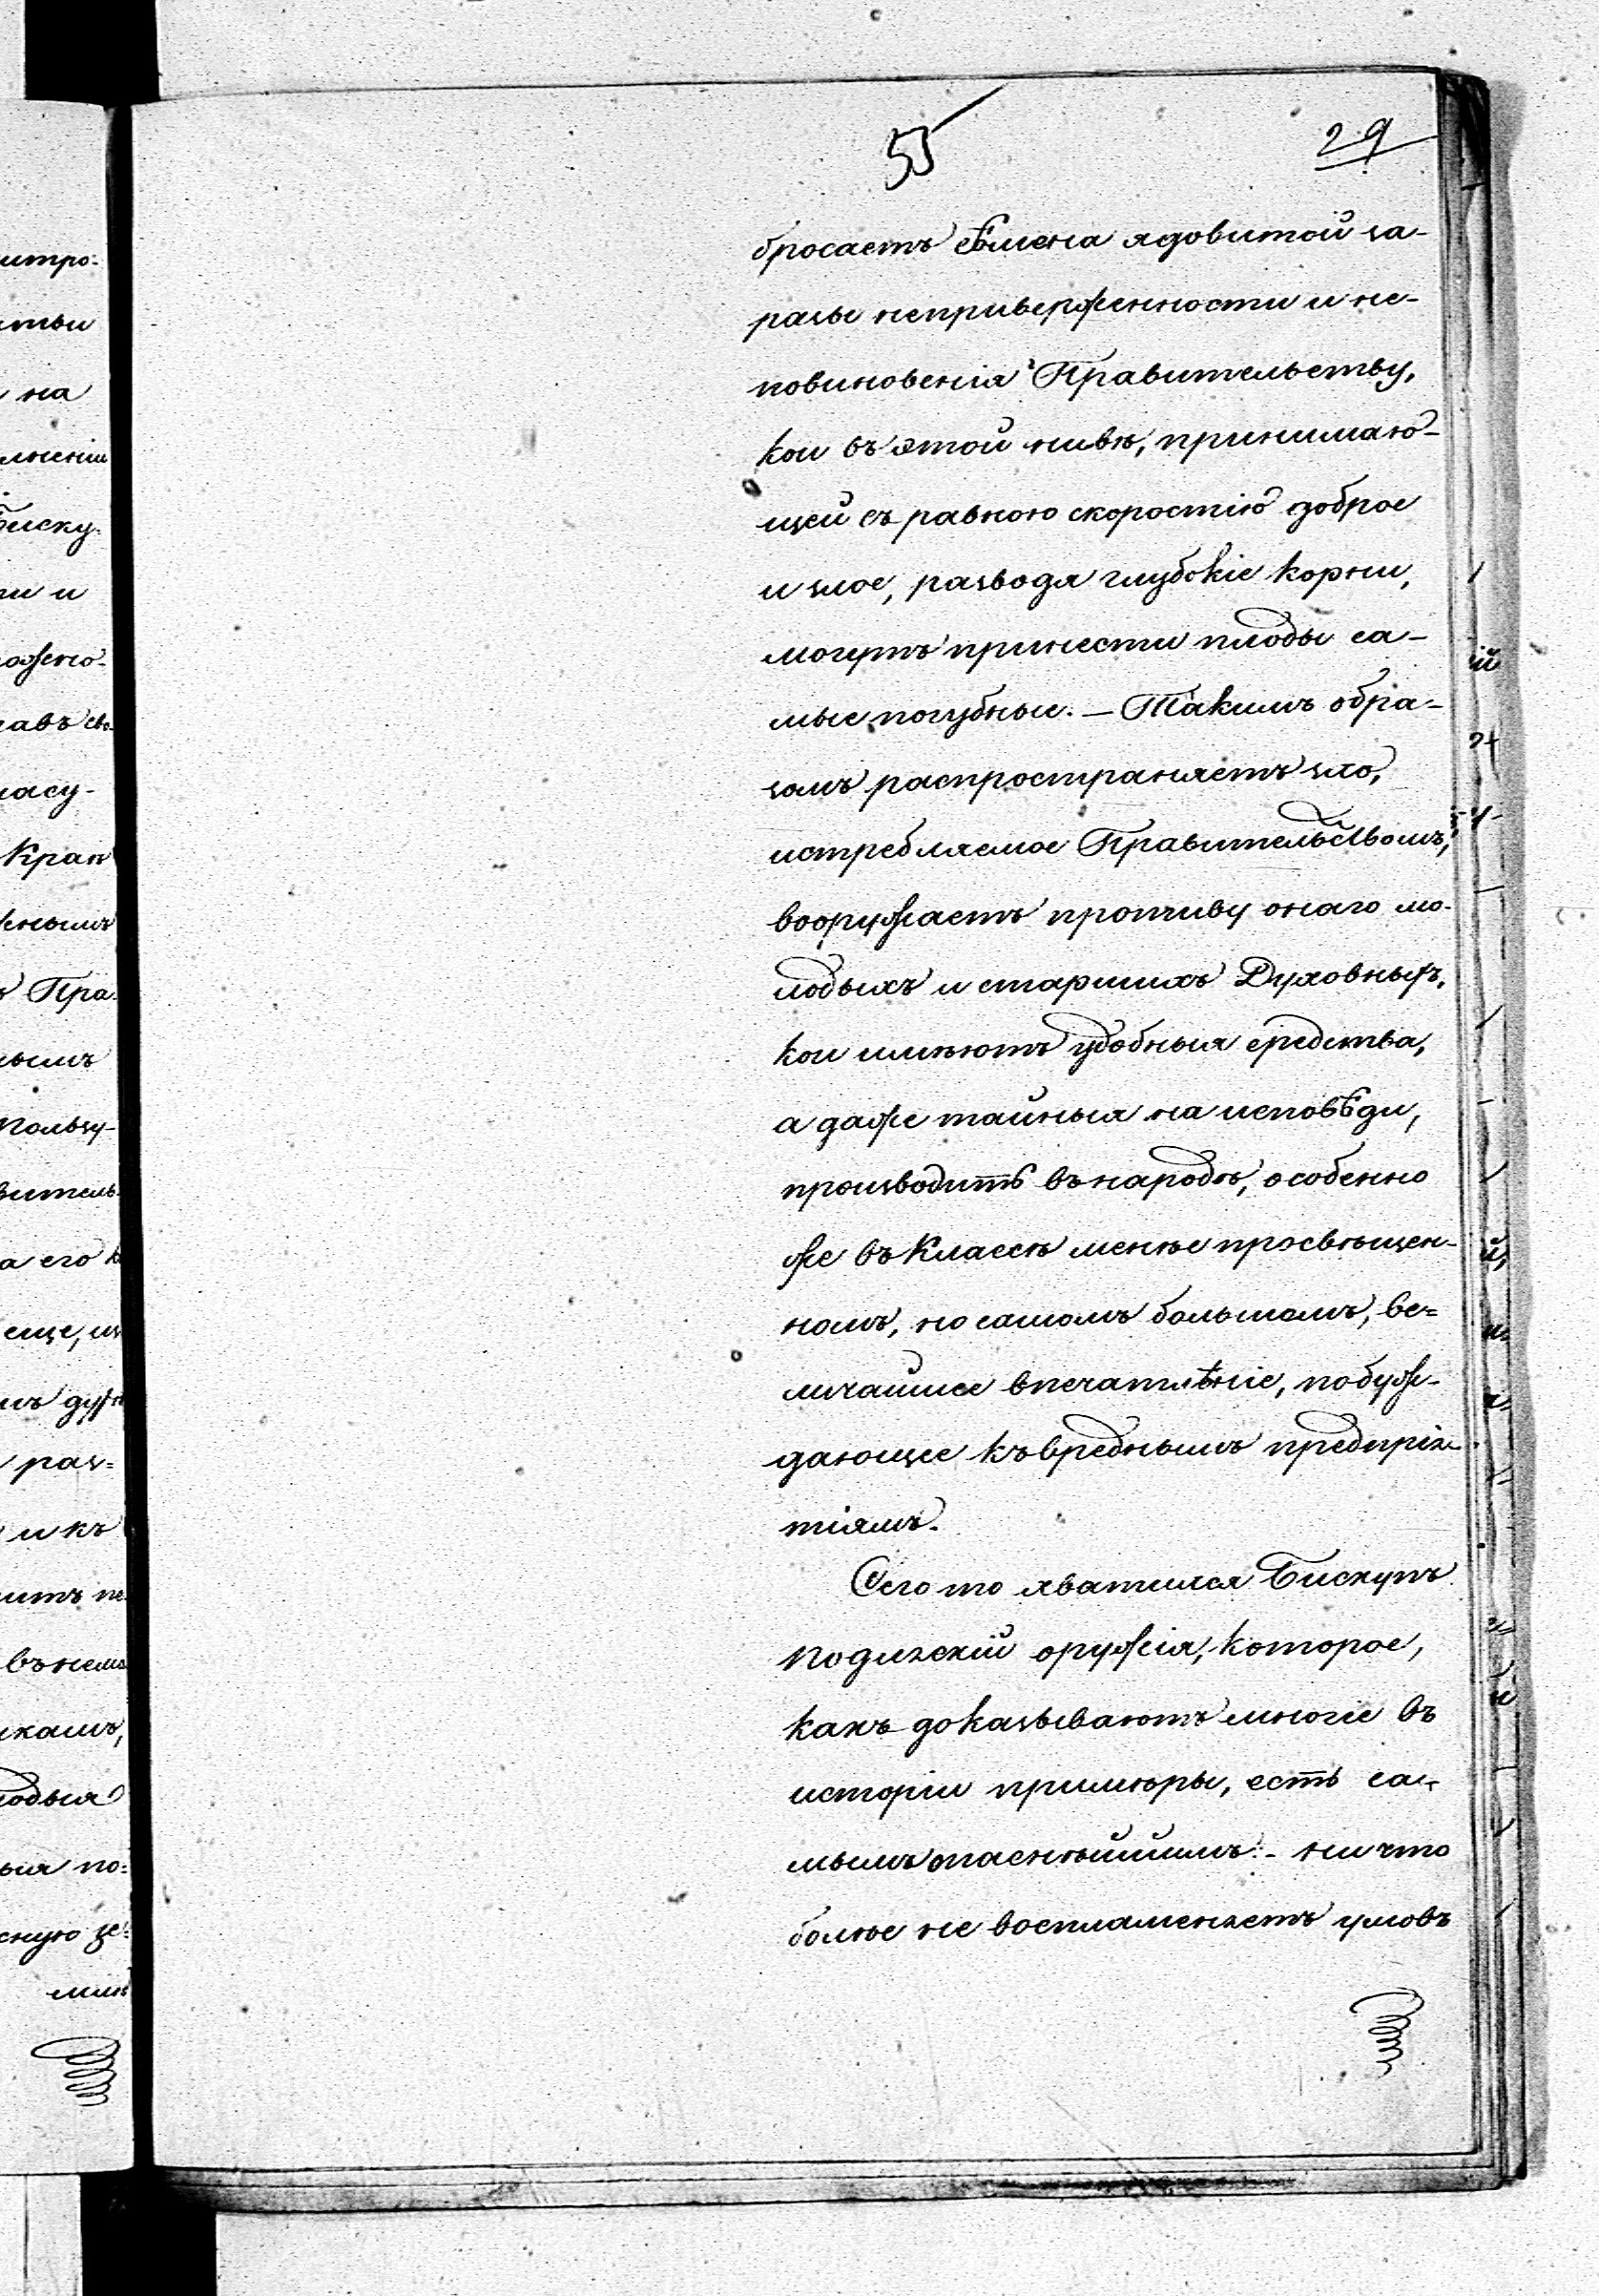 55
29
бросаетъ сѣмена ядовитой за-
разы неприверженности и не-
повиновенія Правительству,
кои въ этой нивѣ, принимаю-
щей съ равною скоростію доброе
и злое, разводя глубокіе корни,
могутъ принести плоды са-
мые погубные. – Такимъ обра-
зомъ распространяетъ зло,
истребляемое Правительствомъ,
вооружаетъ противу онаго мо-
лодыхъ и старшихъ Духовныхъ,
кои имѣютъ удобныя средства,
а даже тайныя на исповѣди,
производить въ народѣ, особенно
же въ классѣ менѣе просвѣщен-
номъ, но самомъ большомъ, ве=
личайшее впечатлѣніе, побуж-
дающее къ вреднымъ предпрія-
тіямъ.
Сего то хватился Бискупъ
Подлязскій оружія, которое,
какъ доказываютъ многіе въ
исторіи примѣры, есть са-
мымъ опаснѣйшимъ: - ничто
болѣе не воспламеняетъ умовъ